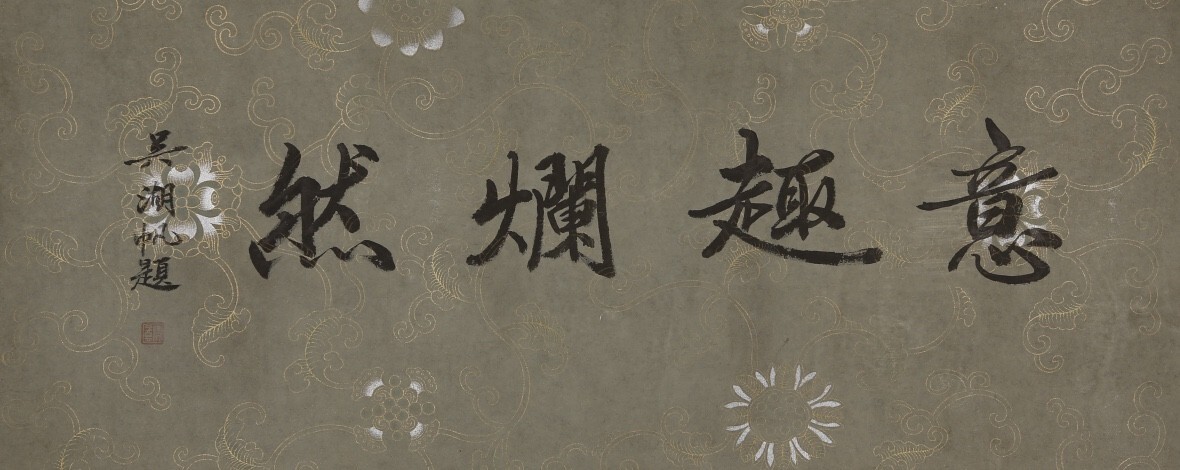 意趣爛然
吳湖帆題